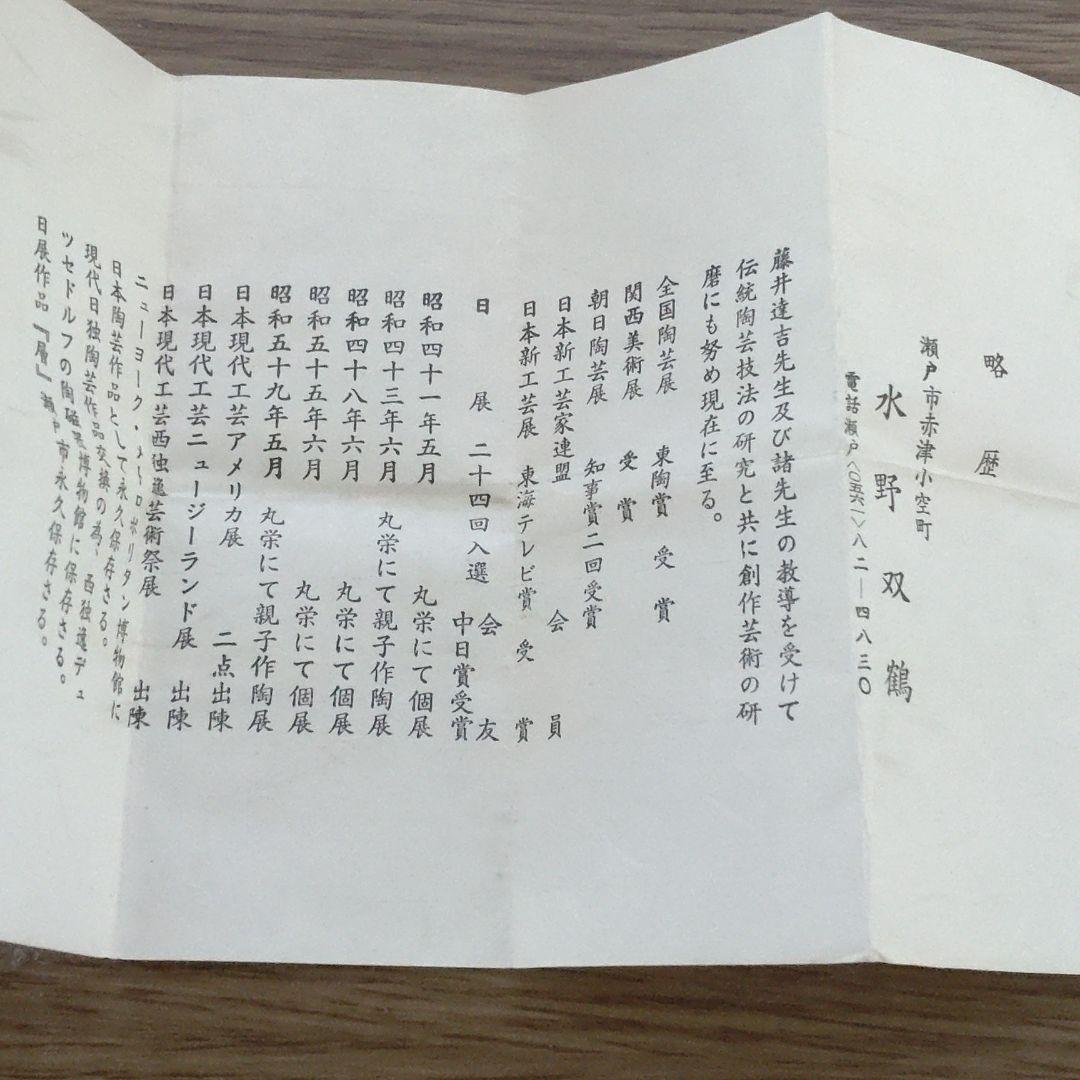 略歴
瀬戸市赤津小空町
水野双鶴
電話瀬戸〈〇五六一〉八二―四八三〇
藤井達吉先生及び諸先生の教導を受けて
伝統陶芸技法の研究と共に創作芸術の研
磨にも努め現在に至る。
全国陶芸展 東陶賞 受賞
関西美術展 受賞
朝日陶芸展 知事賞二回受賞
日本新工芸家連盟 会員
日本新工芸展 東海テレビ賞 受賞
日展 二十四回入選 会友
中日賞受賞
昭和四十一年五月 丸栄にて個展
昭和四十三年六月 丸栄にて親子作陶展
昭和四十八年六月 丸栄にて個展
昭和五十五年六月 丸栄にて個展
昭和五十九年五月 丸栄にて親子作陶展
日本現代工芸アメリカ展 二点出陳
日本現代工芸ニュージーランド展 出陳
日本現代工芸西独逸芸術祭展 出陳
ニューヨーク・メトロポリタン博物館に
日本陶芸作品として永久保存さる。
現代日独陶芸作品交換の為、西独逸デュ
ッセドルフの陶磁器博物館に保存さる。
日展作品『層』瀬戸市永久保存さる。